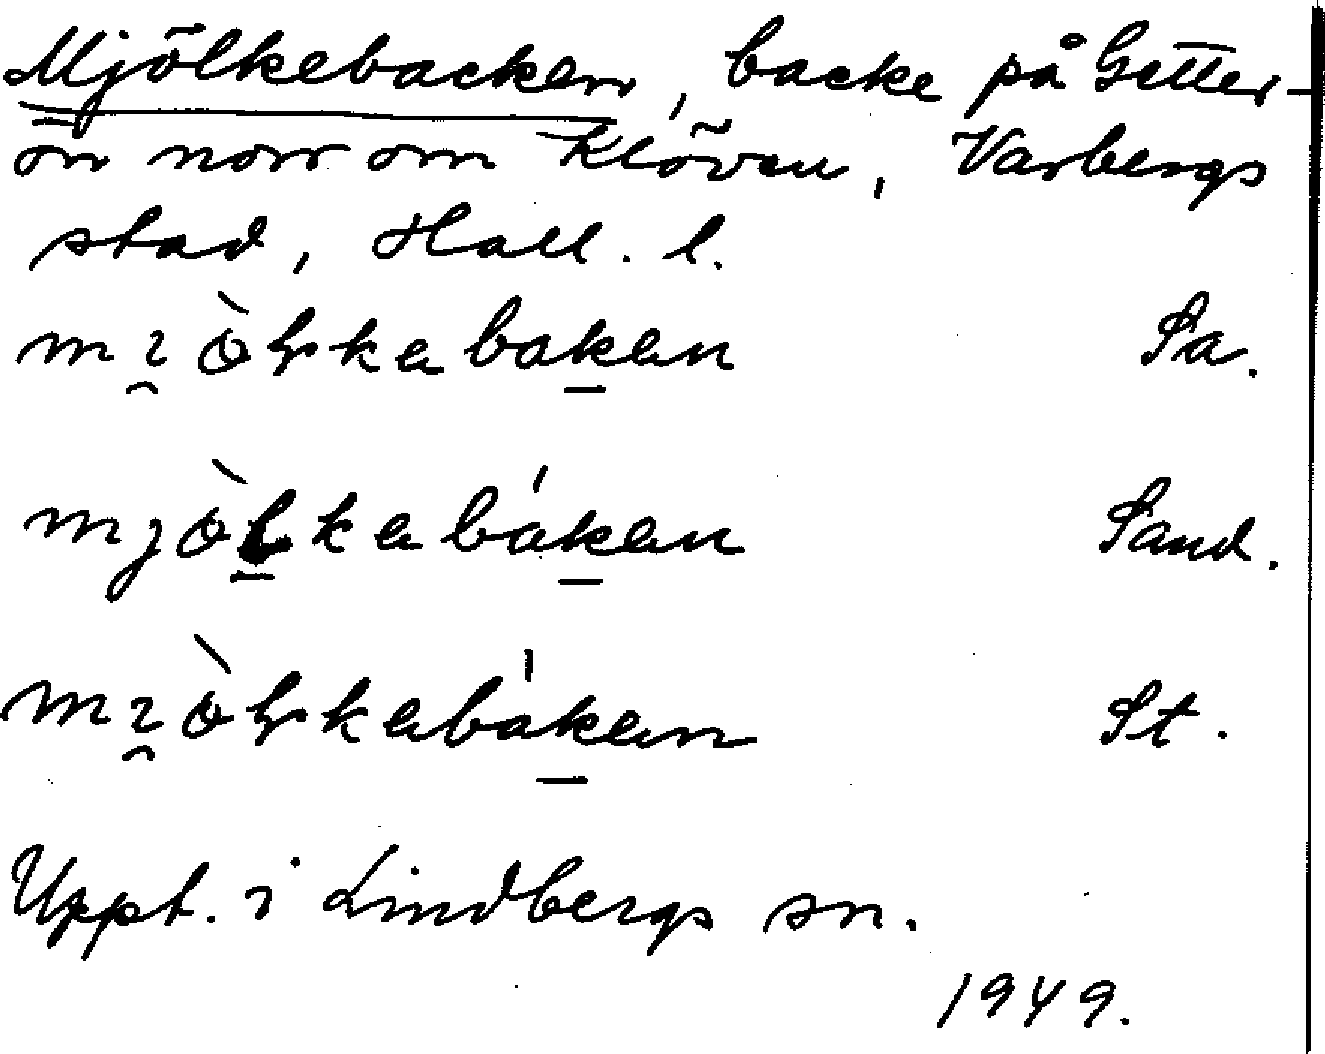 Mjölkebacken, backe på Getter-
ön norr om Klöven, Varbergs
stad, Hall. l.
mı̯ò̵ɫkabak̠an Sa.
mjòl̠kabák̠an Sand.
mı̯òɫkabák̠an St.
Uppt. i Lindbergs sn.
1949.